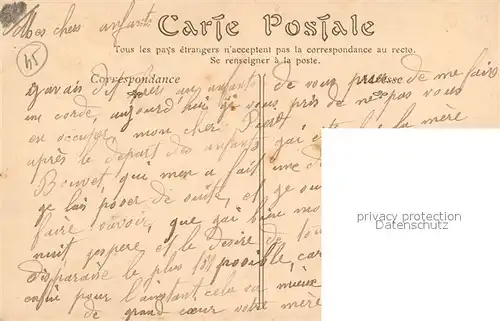 Mes chers enfants
Carte Postale
Tous les pays étrangers n'acceptent pas la correspondance au recto.
Se renseigner à la poste.
45
Correspondance Adresse
javais dit chers enfants de vous de me faire
un corde, aujourd'hui je vous pris de ne pas vous
en occuper, mon cher
après le départ des enfants j'ai été la mère
Bouvet, que men a fait une
je lais poser de suite, et je
faire savoir, que jai bien
nuit jespere et le desire de
disparaitre le plus tôt possible, car
enfin pour l'instant cela va mieux
de grand cœur votre mère
privacy protection
Datenschutz